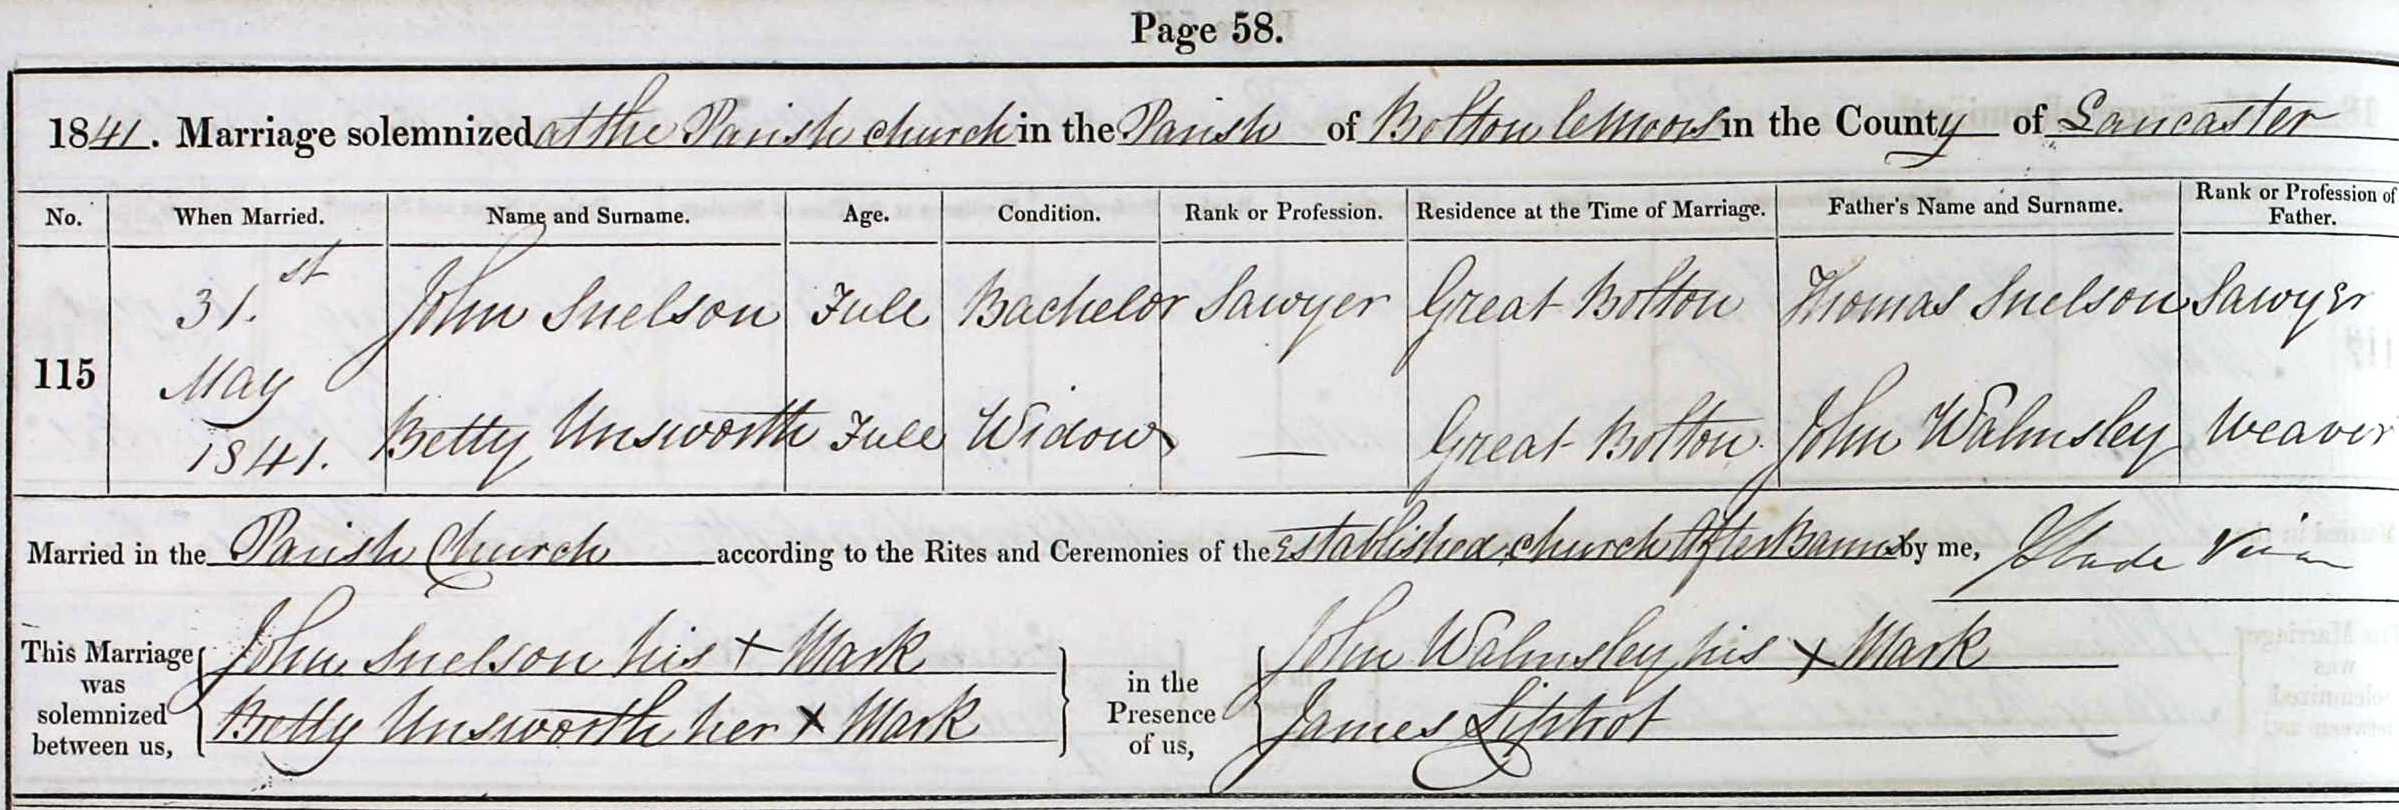 Page 58.
1841. Marriage solemnized at the Parish church in the Parish of Bolton le Moors in the County of Lancaster
No. When Married. Name and Surname. Age. Condition. Rank or Profession. Residence at the Time of Marriage. Father's Name and Surname. Rank or Profession of Father.
31.st John Snelson Full Bachelor Sawyer Great Bolton Thomas Snelson Sawyer
115 May
1841. Betty Unsworth Full Widow — Great Bolton. John Walmsley Weaver
Married in the Parish Church according to the Rites and Ceremonies of the Established church After Banns by me, Slade
This Marriage was solemnized between us, John Snelson his + Mark in the Presence of us, John Walmsley his x Mark
Betty Unsworth her x Mark James Liptrot